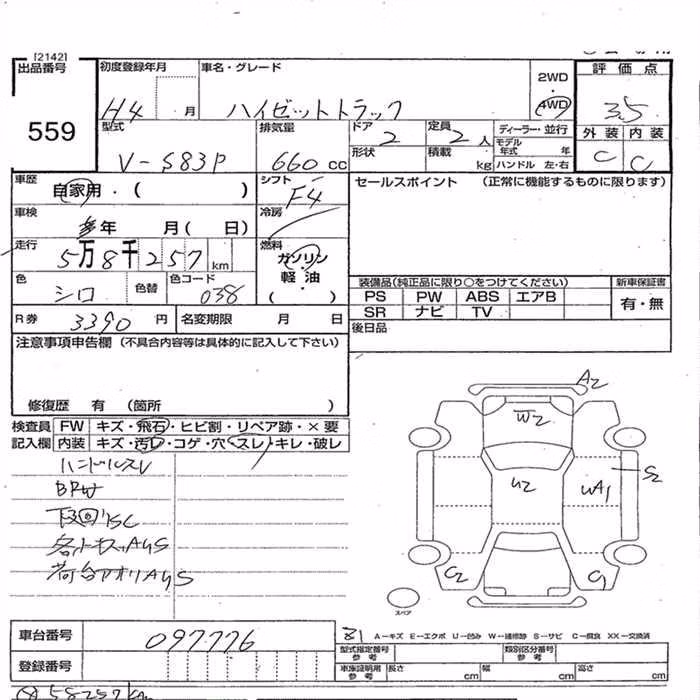 [2142]
出品番号 初度登録年月 車名・グレード 2WD 評価点
559 H4 月 ハイゼットトラック 4WD 3.5
外装 内装
C C
型式 排気量 ドア 定員 ディーラー・並行
V-S83P 660 cc 2 2人 モデル年式 年
形状 積載 kg ハンドル 左・右
車歴 自家用・( ) シフト F4 セールスポイント (正常に機能するものに限ります)
車検 年 月( 日) 冷房
走行 5万8千257 km 燃料 ガソリン・軽油 ( )
色 シロ 色替 色コード 038
装備品(純正品に限り○をつけてください) 新車保証書
PS PW ABS エアB 有・無
SR ナビ TV
R券 3390 円 名変期限 月 日 後日品
注意事項申告欄 (不具合内容等は具体的に記入して下さい)
修復歴 有 (箇所 )
検査員 FW キズ・飛石・ヒビ割・リペア跡・×要
記入欄 内装 キズ・汚レ・コゲ・穴・スレ・キレ・破レ
ハンドルスレ
A2
W2
S2
U2
WA1
C2
C1
スペア
車台番号 097776
登録番号
A−キズ E−エクボ U−凹み W−補修跡 S−サビ C−腐食 XX−交換済
型式指定番号 参考 類別区分番号 参考
車庫証明用 参考 長さ cm 幅 cm 高さ cm
58257 km